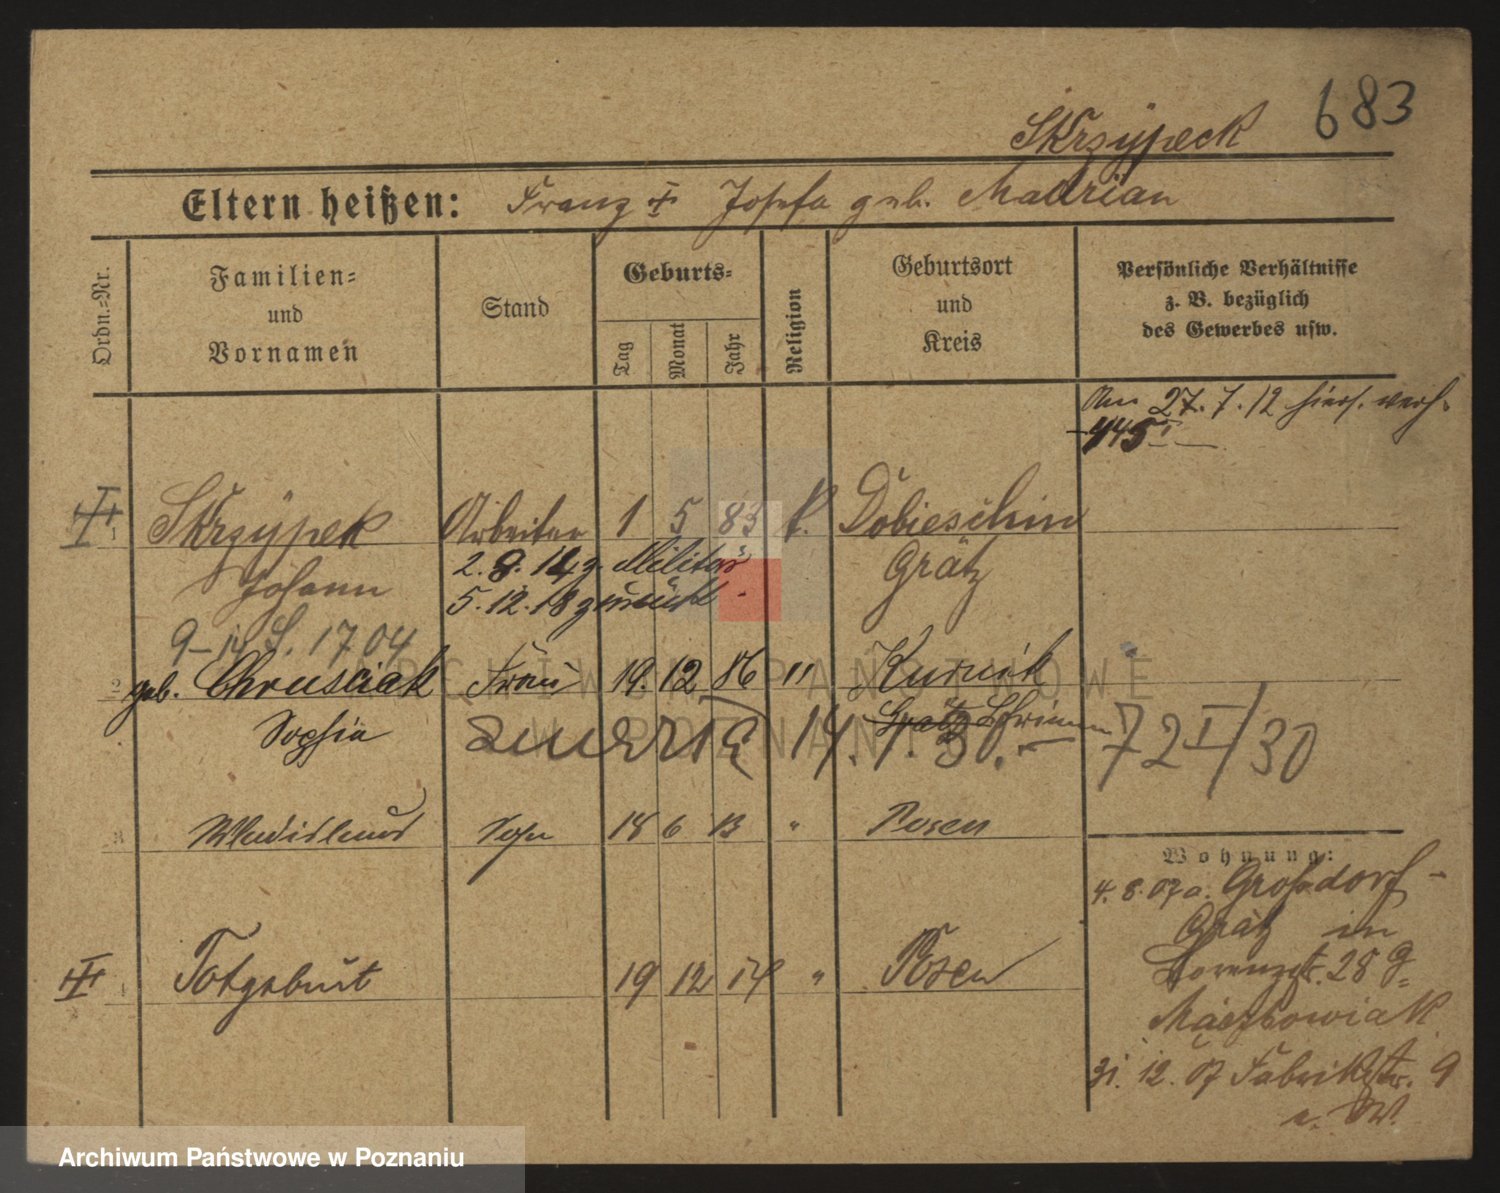 683
Skrzÿpeck
Eltern heißen: Franz ☨ Josefa geb. Madrian
Ordn.=Nr.
Familien=
und
Vornamen
Stand
Geburts=
Tag
Monat
Jahr
Religion
Geburtsort
und
Kreis
Persönliche Verhältnisse
z. B. bezüglich
des Gewerbes usw.
Am 27. 7. 12 hiers. verh.
445 I
1 Skrzÿpek Arbeiter 1 5 85 k. Dobieschin
Johann 2. 8. 14 z. Militär Grätz
5. 12. 18 zurück
1704
2 geb. Chrusciak Frau 19. 12 86 " Kurnik
Sophia Grätz Schrimm
zmarła 14. 7. 30. 72 I/30
3 Wladislaus Sohn 18 6 13 " Posen
Wohnung:
4. 8. 07 a. Großdorf-
Grätz in
Lorenzstr. 28 b.
Maczkowiak
4 Totgeburt 19 12 14 " Posen
31. 12. 07 Fabrikstr. 9
Archiwum Państwowe w Poznaniu
ARCHIWUM PAŃSTWOWE
W POZNANIU